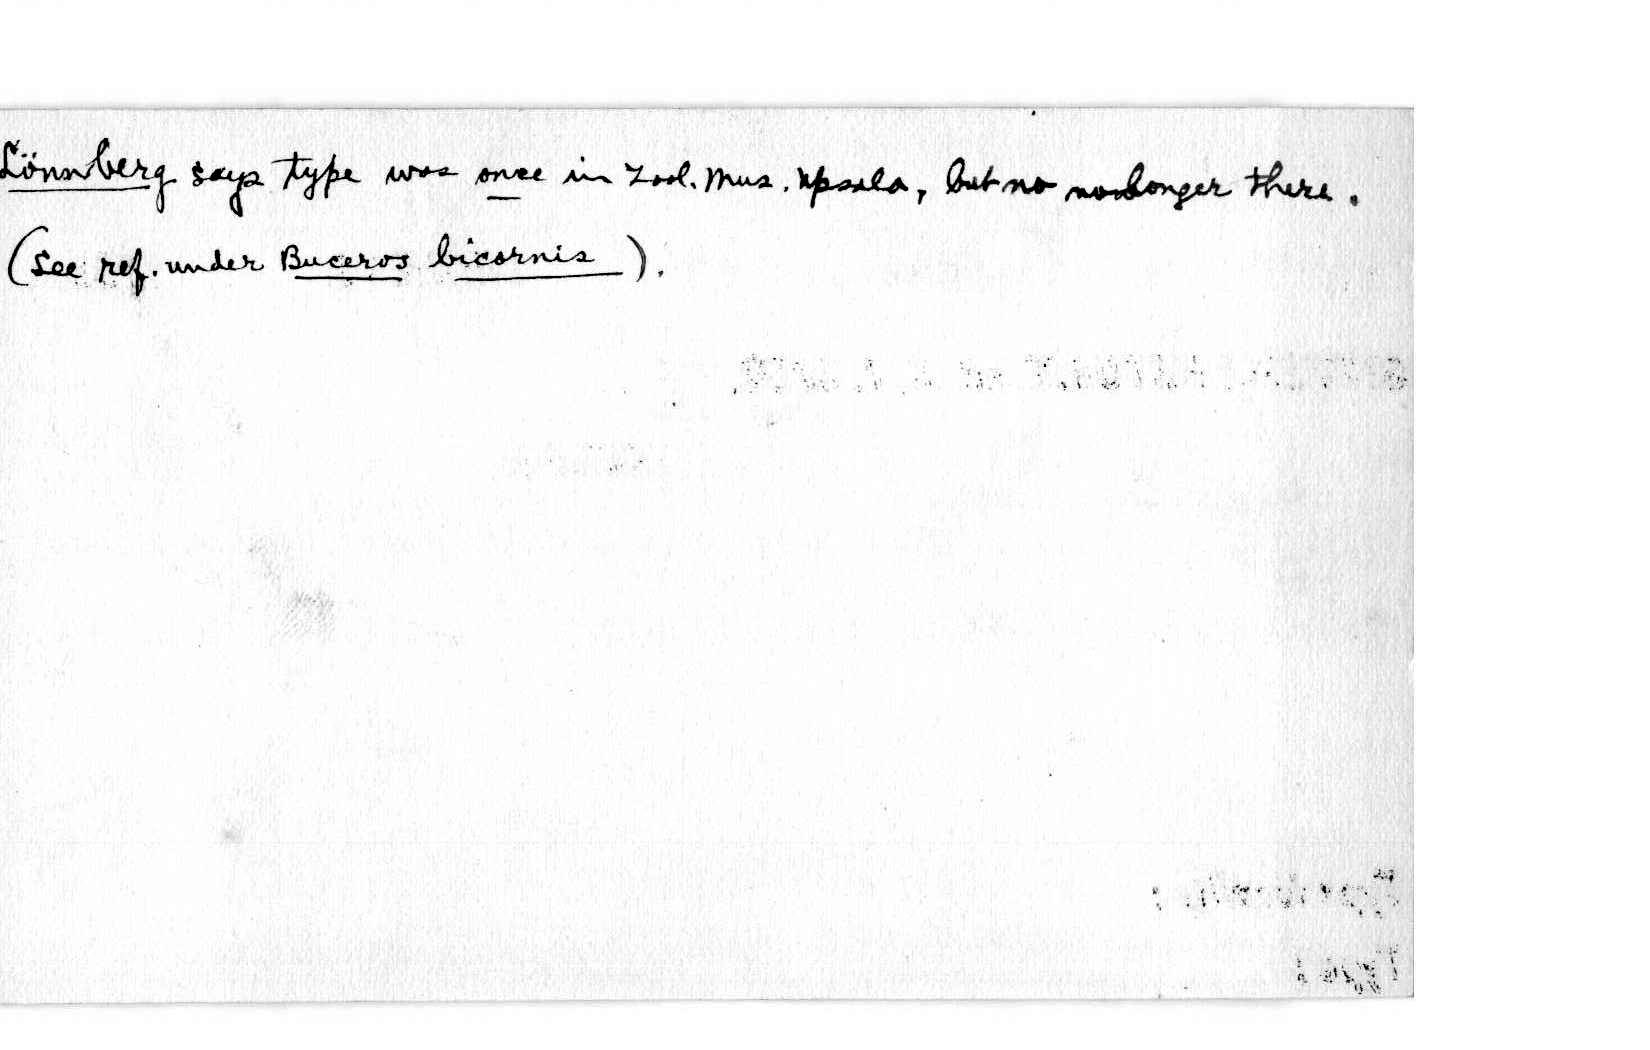 Lönnberg says type was once in Zool. Mus. Upsala, but no no longer there.
(See ref. under Buceros bicornis).